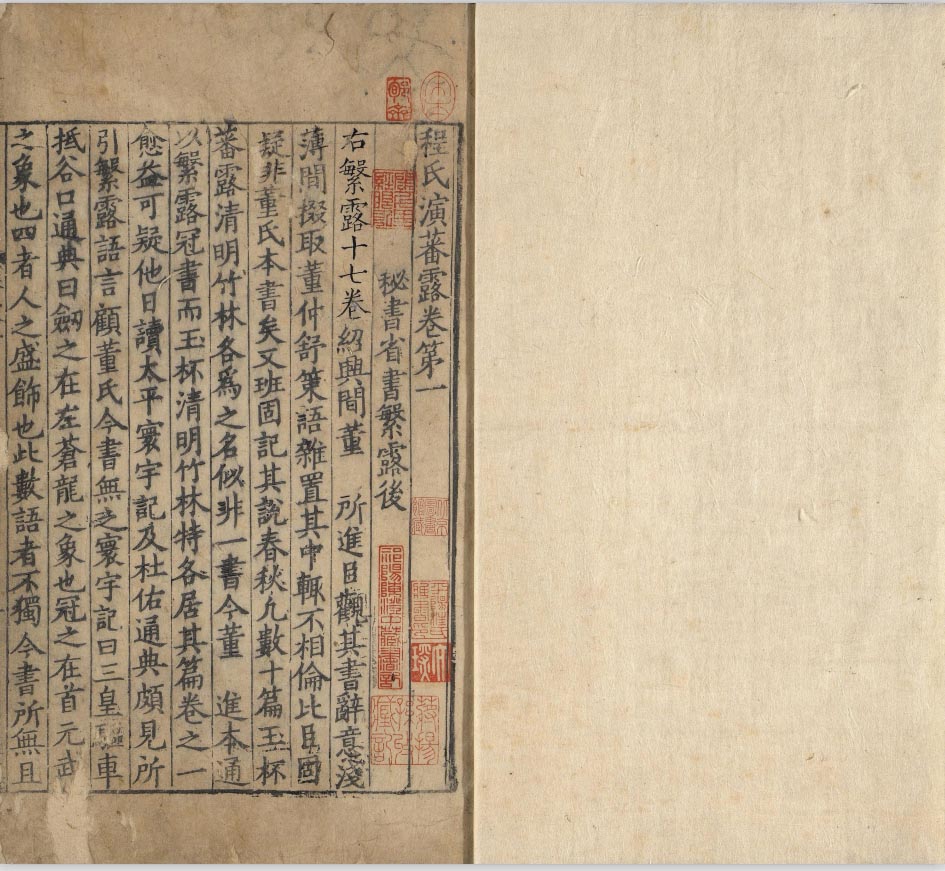 程氏演蕃露卷第一
秘書省書繁露後
右繁露十七卷紹興間董 所進臣觀其書辭意淺
薄間掇取董仲舒策語雜置其中輒不相倫比臣固
疑非董氏本書矣又班固記其說春秋凢數十篇玉杯
蕃露清明竹林各爲之名似非一書今董 進本通
以繁露冠書而玉杯清明竹林特各居其篇卷之一
愈益可疑他日讀太平寰宇記及杜佑通典頗見所
引繁露語言顧董氏今書無之寰宇記曰三皇 車
抵谷口通典曰劒之在左蒼龍之象也冠之在首元武
之象也四者人之盛飾也此數語者不獨今書所無且
祁陽陳澄中藏書記